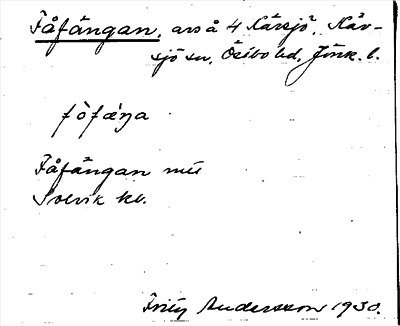 Fåfängan, avs å 4 Kärsjö, När-
sjö sn, Östbo hd, Jönk. l.
fòfæŋa
Fåfängan nu
Solvik kv.
Fritz Andersson 1930.